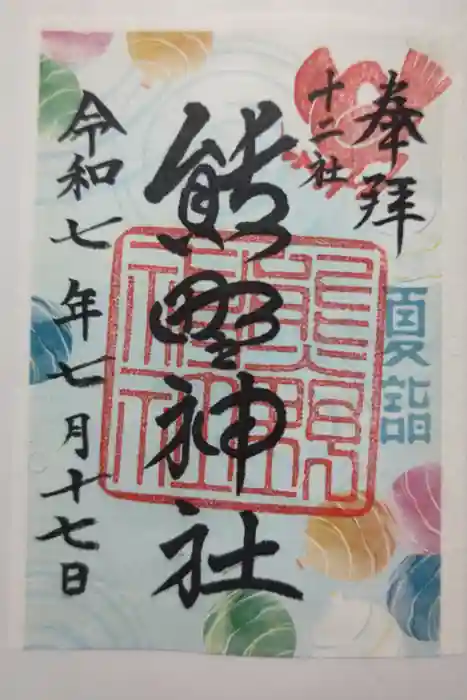 奉拝
十二社
熊野神社
熊野神社
夏詣
令和七年七月十七日